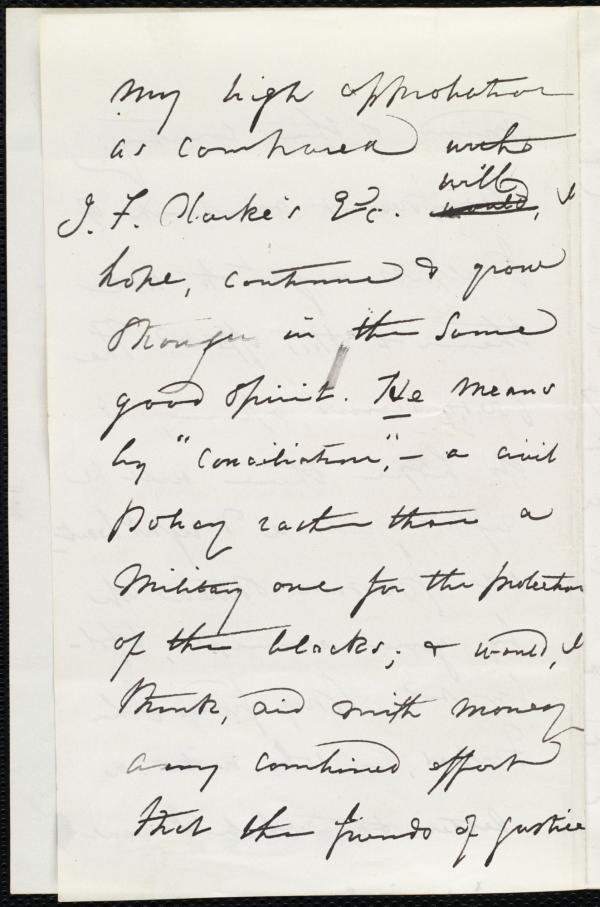 my high approbation
as compared with
J. F. Clarke's &c. would, will, I
hope, continue & grow
stronger in the same
good spirit. He means
by "conciliation", – a civil
Policy rather than a
Military one for the protection
of the blacks; & would, I
think, aid with money
any combined effort
that the friends of justice